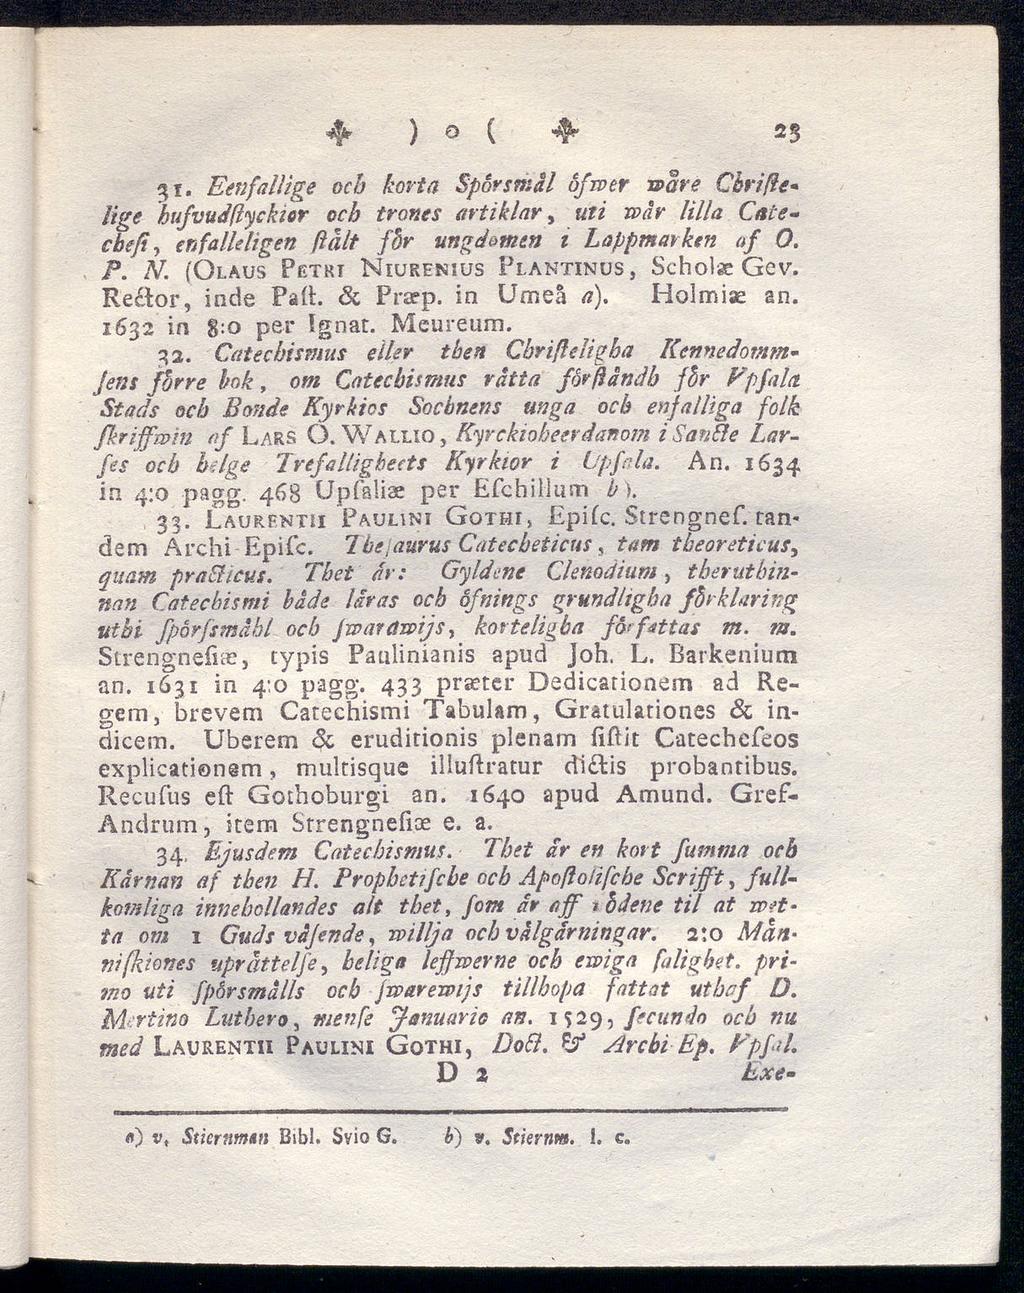 ) o ( 23
31. Eenfallige och korta Spörsmål öfwer wåre Christe-
lige hufvudstyckior och trones artiklar, uti wår lilla Cate-
chesi, enfalleligen stält för ungdomen i Lappmarken af O.
P. N. (OLAUS PETRI NIURENIUS PLANTINUS, Scholæ Gev.
Rector, inde Past. & Præp. in Umeå a). Holmiæ an.
1632 in 8:o per Ignat. Meureum.
32. Catechismus eller then Christeligha Kennedomm-
sens förre bok, om Catechismus rätta förståndh för Vpsala
Stads och Bonde Kyrkios Sochnens unga och enfalliga folk
skriffwin af LARS O. WALLIO, Kyrckioheerdanom i Sancte Lar-
ses och helge Trefalligheets Kyrkior i Upsala. An. 1634
in 4:o pagg. 468 Upsaliæ per Eschillum b).
33. LAURENTII PAULINI GOTHI, Episc. Strengnes. tan-
dem Archi-Episc. Thesaurus Catecheticus, tam theoreticus,
quam practicus. Thet är: Gyldene Clenodium, theruthin-
nan Catechismi både läras och öfnings grundligha förklaring
uthi spörssmåhl och swarawijs, korteligha författas m. m.
Strengnesiæ, typis Paulinianis apud Joh. L. Barkenium
an. 1631 in 4:o pagg. 433 præter Dedicationem ad Re-
gem, brevem Catechismi Tabulam, Gratulationes & in-
dicem. Uberem & eruditionis plenam sistit Catecheseos
explicationem, multisque illustratur dictis probantibus.
Recusus est Gothoburgi an. 1640 apud Amund. Gref-
Andrum, item Strengnesiæ e. a.
34. Ejusdem Catechismus. Thet är en kort summa och
Kärnan af then H. Prophetische och Apostolische Scrifft, full-
komliga innehollandes alt thet, som är aff nödene til at wet-
ta om 1 Guds väsende, willja och välgärningar. 2:o Män-
niskiones uprättelse, heliga leffwerne och ewiga salighet. pri-
mo uti spörsmålls och swarewijs tillhopa fattat uthaf D.
Martino Luthero, mense Januario an. 1529, secundo och nu
med LAURENTII PAULINI GOTHI, Doct. & Archi-Ep. Vpsal.
D 2 Exe-
a) v. Stiernman Bibl. Svio G. b) v. Stiernm. l. c.